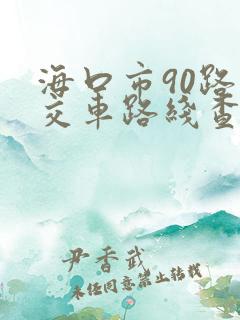 海口市90路
交车路线查
尹香武
未经同意禁止转载